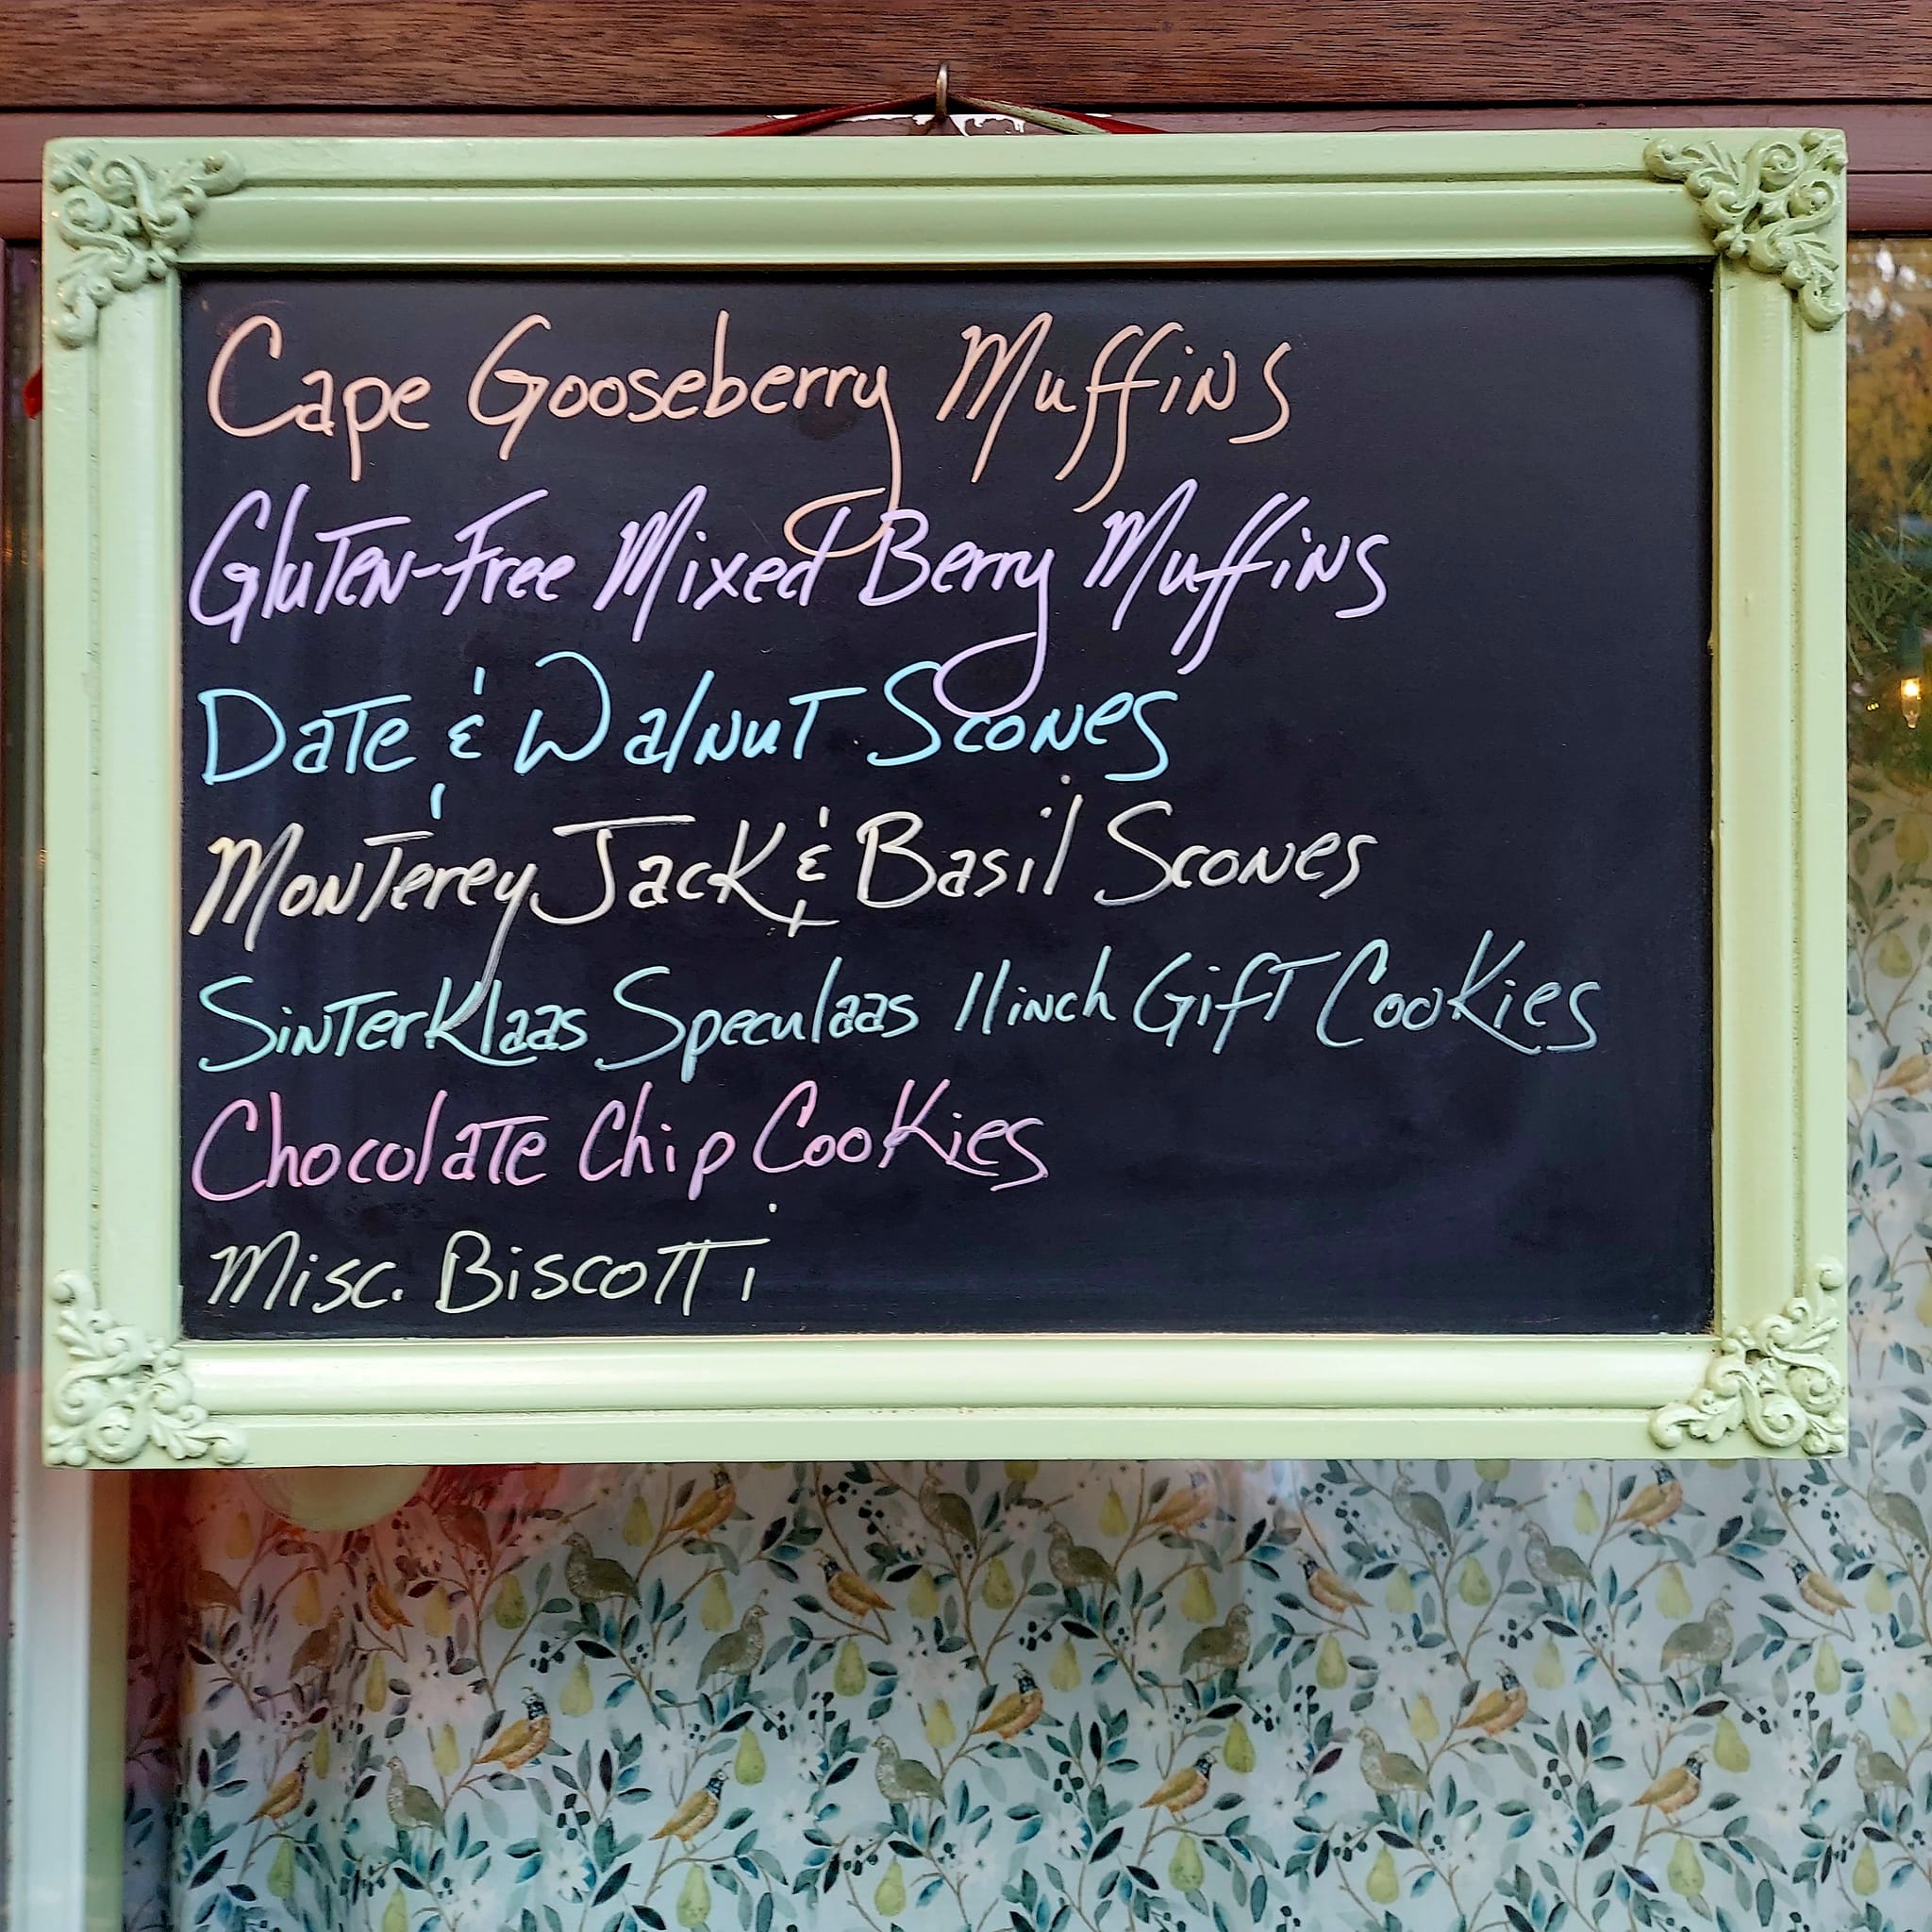 Cape Gooseberry Muffins
Gluten-Free Mixed Berry Muffins
Date & Walnut Scones
Monterey Jack & Basil Scones
Sinterklaas Speculaas 11inch Gift Cookies
Chocolate Chip Cookies
Misc. Biscotti